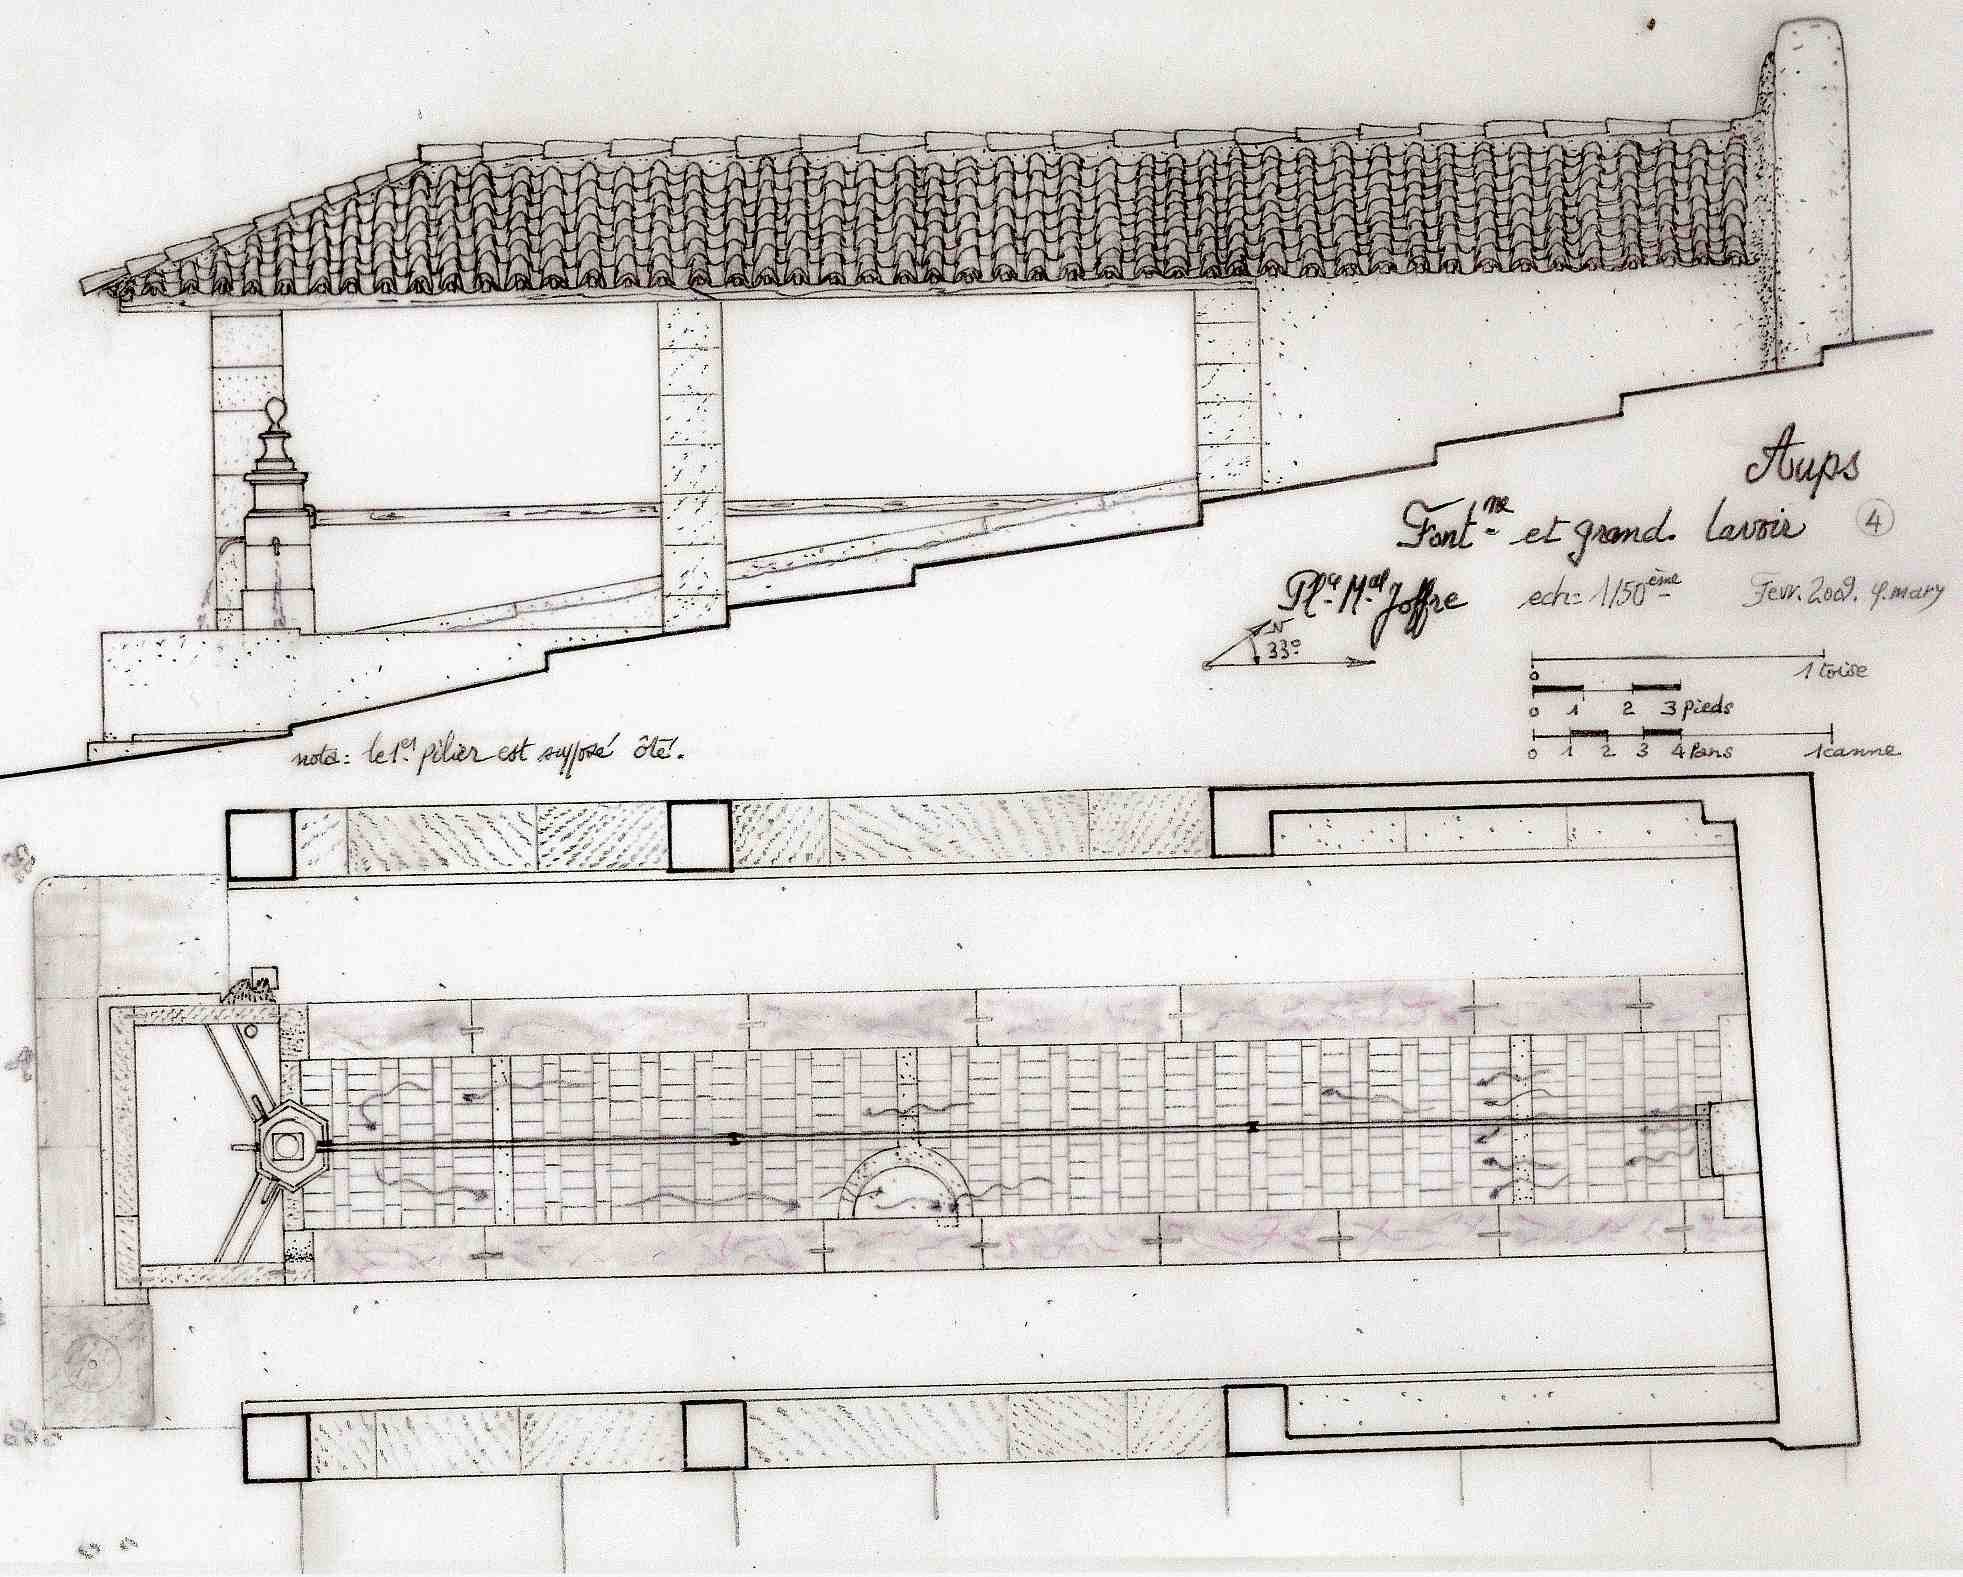 Aups
Font.ne et grand. lavoir 4
Pl.ce M.al Joffre ech= 1/50ème Fevr. 2009. y.mary
N
33°
0 1 toise
0 1 2 3 pieds
0 1 2 3 4 Pans 1 canne
nota: le 1er. pilier est supposé ôté.